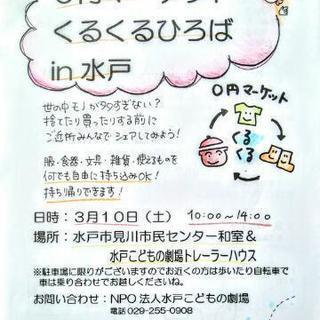 0円マーケット
くるくるひろば
in 水戸
世の中モノが多すぎない？
捨てたり買ったりする前に
ご近所みんなでシェアしてみよう！
0円マーケット
くるくる
服・食器・文具・雑貨・使えるものを
何でも自由に持ち込みOK！
持ち帰りできます！
日時：３月１０日（土） 10:00～14:00
場所：水戸市見川市民センター和室＆
水戸こどもの劇場トレーラーハウス
※駐車場に限りがございますのでお近くの方は歩いたり自転車で
車は乗り合わせでお越しくださいね。
お問い合わせ：NPO 法人水戸こどもの劇場
電話 029-255-0908